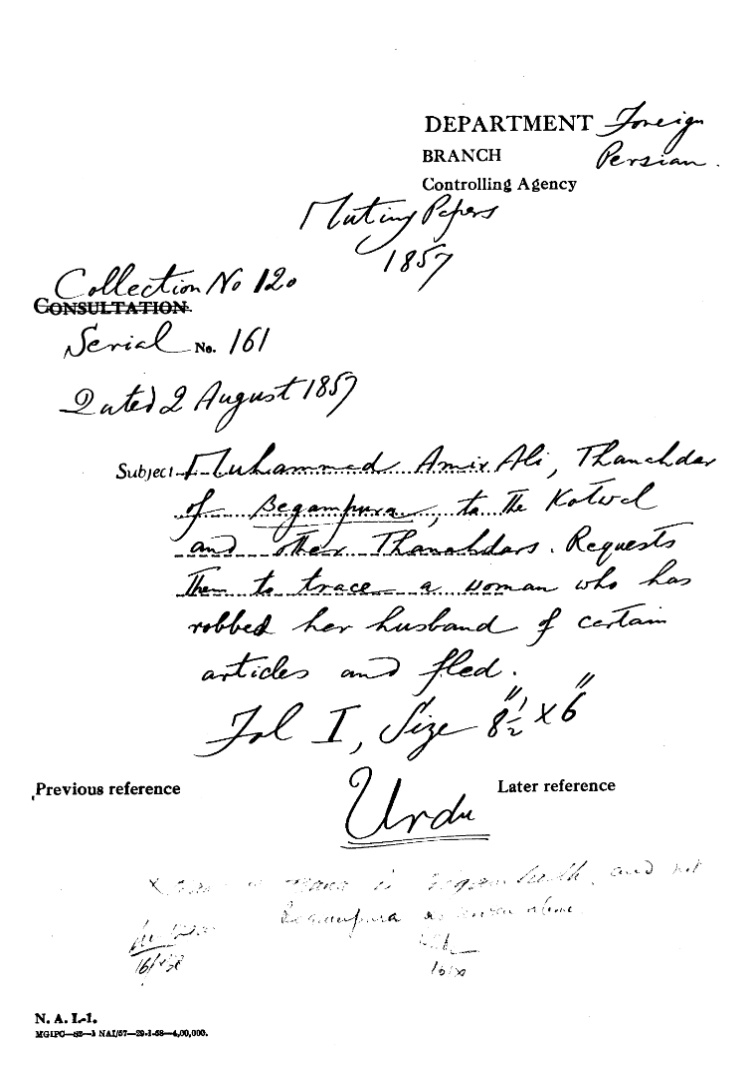 DEPARTMENT Foreign
BRANCH Persian.
Controlling Agency
Mutiny Papers
1857
Collection No 120
CONSULTATION.
Serial No. 161
Dated 2 August 1857
Subject Muhammed Amir Ali, Thanahdar
of Begampura, to the Kotwal
and other Thanahdars. Requests
them to trace a woman who has
robbed her husband of certain
articles and fled.
Fol I, Size 8½" × 6"
Previous reference
Later reference
Urdu
and not
Begampura as above
N. A. I.-1.
MGIPC—S2—3 NAI/57—29-1-58—4,00,000.